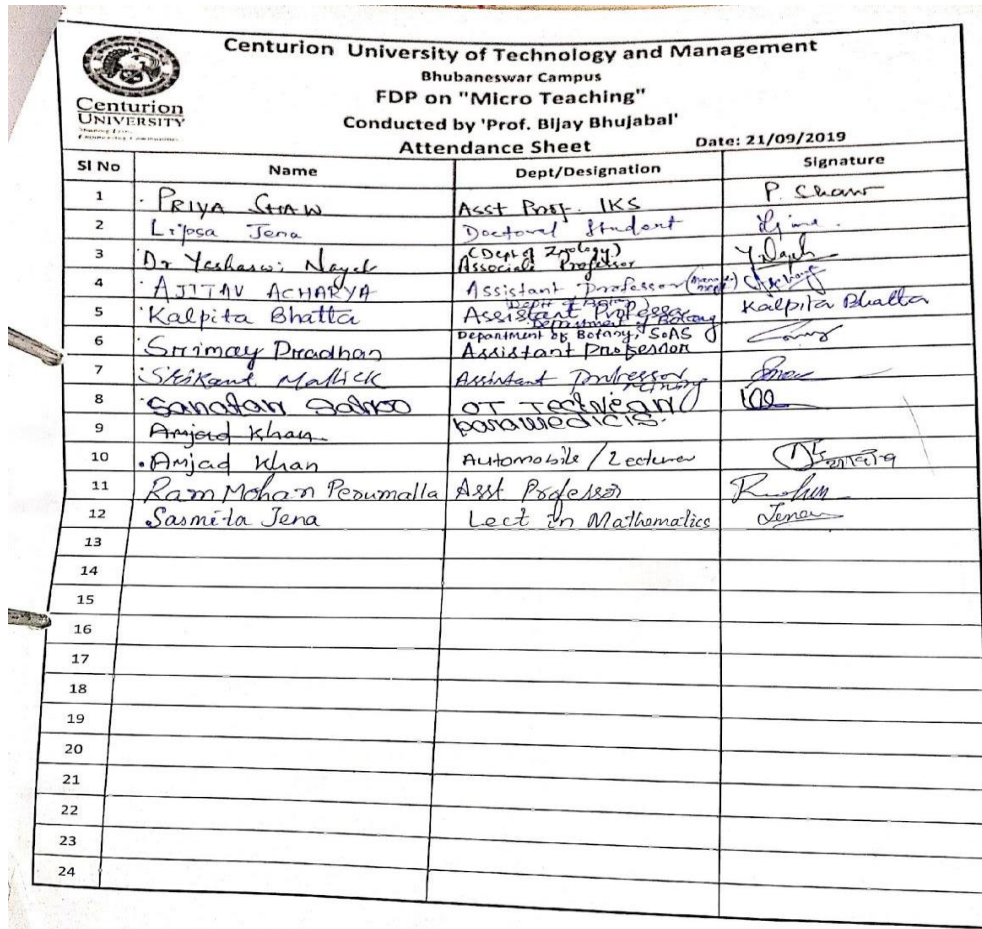 Centurion University of Technology and Management
Bhubaneswar Campus
FDP on "Micro Teaching"
Conducted by 'Prof. Bijay Bhujabal'
Attendance Sheet
Date: 21/09/2019
Centurion
UNIVERSITY
Sl No Name Dept/Designation Signature
1 PRIYA SHAW Asst Prof. IKS P. Shaw
2 Lipsa Jena Doctoral Student
3 Dr Yashaswi Nayak (Dept of Zoology) Associate Professor
4 AJITAV ACHARYA Assistant Professor
5 Kalpita Bhatta Assistant Professor Department of Botany Kalpita Bhatta
6 Srimay Pradhan Department of Botany, SoAS Assistant Professor
7 Srikant Mallick Assistant Professor
8 Sanatan Sahoo OT
9 Amjad Khan
10 Amjad Khan Automobile / Lecturer
11 Ram Mohan Perumalla Asst Professor
12 Sasmita Jena Lect in Mathematics Jena
13
14
15
16
17
18
19
20
21
22
23
24